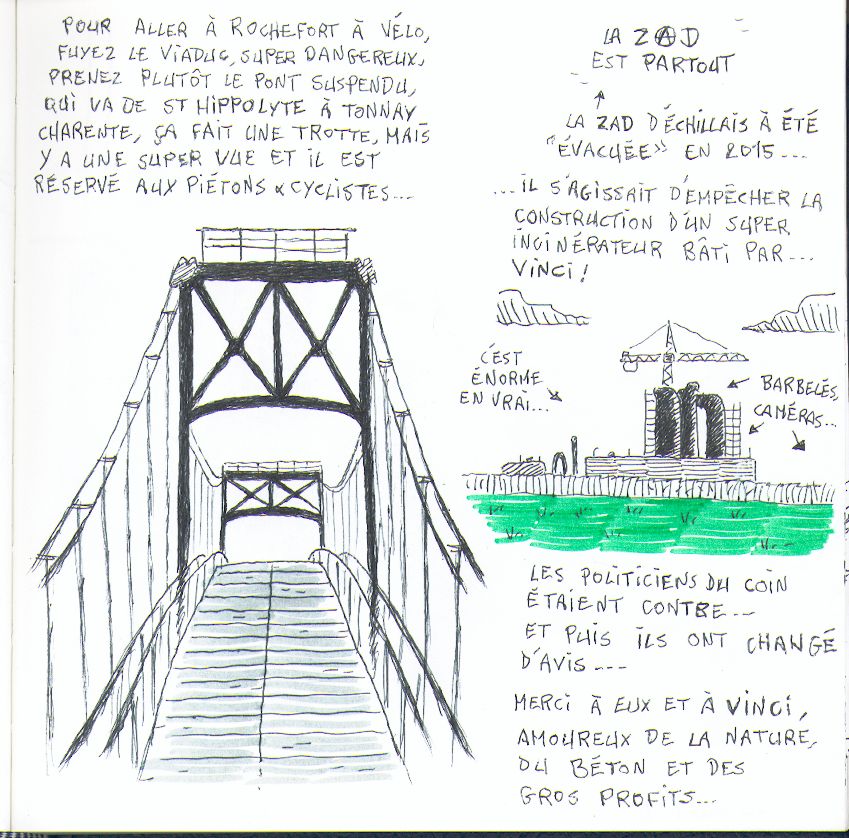 POUR ALLER À ROCHEFORT À VÉLO,
FUYEZ LE VIADUC, SUPER DANGEREUX,
PRENEZ PLUTÔT LE PONT SUSPENDU,
QUI VA DE ST HIPPOLYTE À TONNAY
CHARENTE, ÇA FAIT UNE TROTTE, MAIS
Y A UNE SUPER VUE ET IL EST
RÉSERVÉ AUX PIÉTONS & CYCLISTES...
LA ZAD
EST PARTOUT
LA ZAD D'ÉCHILLAIS À ÉTÉ
"ÉVACUÉE» EN 2015...
...IL S'AGISSAIT D'EMPÊCHER LA
CONSTRUCTION D'UN SUPER
INCINÉRATEUR BÂTI PAR...
VINCI!
C'EST
ÉNORME
EN VRAI...
BARBELÉS,
CAMÉRAS...
LES POLITICIENS DU COIN
ÉTAIENT CONTRE...
ET PUIS ILS ONT CHANGÉ
D'AVIS...
MERCI À EUX ET À VINCI,
AMOUREUX DE LA NATURE,
DU BÉTON ET DES
GROS PROFITS...